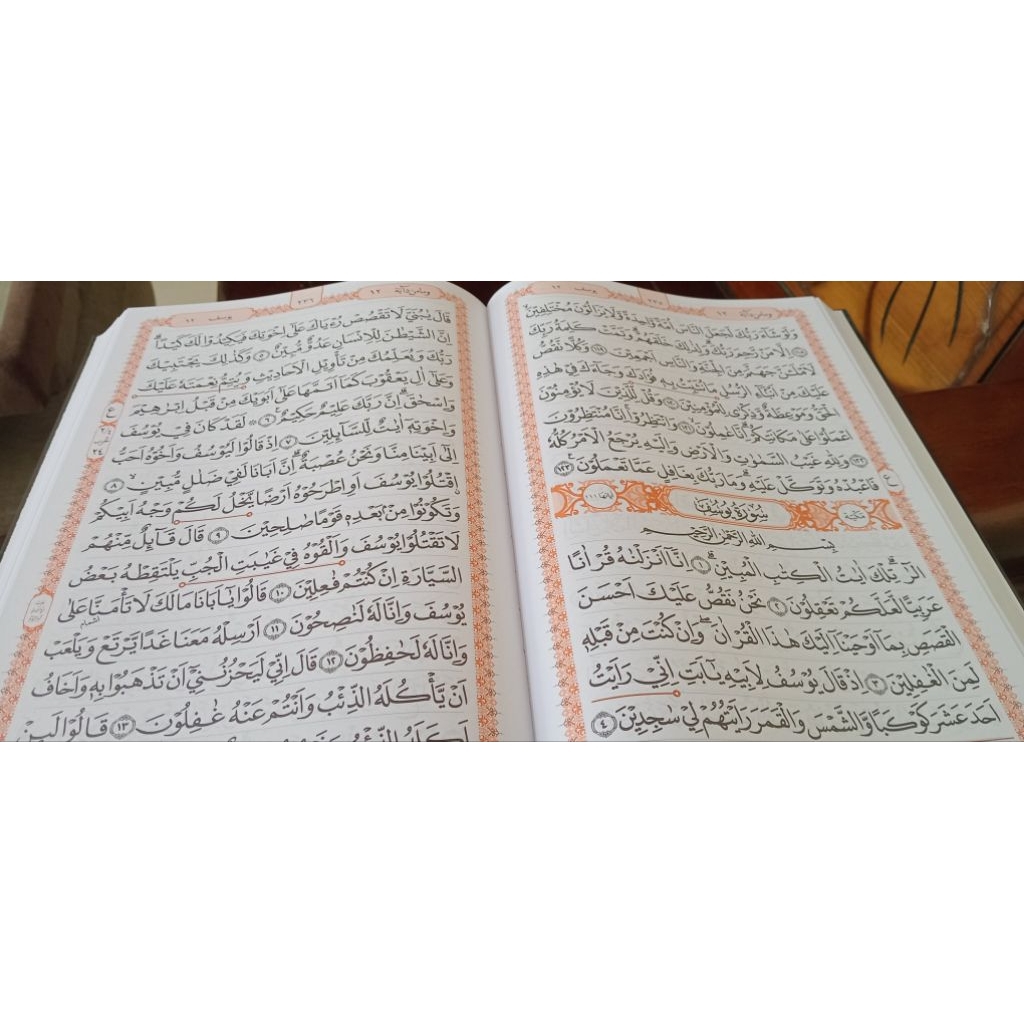 يوسف ١٢
٢٣٥
ومامن دآبة ١٢
وَلَوْشَآءَ رَبُّكَ لَجَعَلَ النَّاسَ اُمَّةً وَّاحِدَةً وَّلَا يَزَالُوْنَ مُخْتَلِفِيْنَۙ
اِلَّا مَنْ رَّحِمَ رَبُّكَ ۗوَلِذٰلِكَ خَلَقَهُمْ ۗوَتَمَّتْ كَلِمَةُ رَبِّكَ
لَاَمْلَـَٔنَّ جَهَنَّمَ مِنَ الْجِنَّةِ وَالنَّاسِ اَجْمَعِيْنَ ١١٩ وَكُلًّا نَّقُصُّ
عَلَيْكَ مِنْ اَنْۢبَآءِ الرُّسُلِ مَا نُثَبِّتُ بِهٖ فُؤَادَكَ وَجَآءَكَ فِيْ هٰذِهِ
الْحَقُّ وَمَوْعِظَةٌ وَّذِكْرٰى لِلْمُؤْمِنِيْنَ ١٢٠ وَقُلْ لِّلَّذِيْنَ لَا يُؤْمِنُوْنَ
اعْمَلُوْا عَلٰى مَكَانَتِكُمْ ۗاِنَّا عٰمِلُوْنَ ١٢١ وَانْتَظِرُوْاۚ اِنَّا مُنْتَظِرُوْنَ
١٢٢ وَلِلّٰهِ غَيْبُ السَّمٰوٰتِ وَالْاَرْضِ وَاِلَيْهِ يُرْجَعُ الْاَمْرُ كُلُّهٗ
فَاعْبُدْهُ وَتَوَكَّلْ عَلَيْهِ ۗوَمَا رَبُّكَ بِغَافِلٍ عَمَّا تَعْمَلُوْنَ ١٢٣
ع
مكية
سُوْرَةُ يُوْسُفَ
اٰياتها ١١١
بِسْمِ اللّٰهِ الرَّحْمٰنِ الرَّحِيْمِ
الۤرٰ ۗ تِلْكَ اٰيٰتُ الْكِتٰبِ الْمُبِيْنِۗ ١ اِنَّآ اَنْزَلْنٰهُ قُرْاٰنًا
عَرَبِيًّا لَّعَلَّكُمْ تَعْقِلُوْنَ ٢ نَحْنُ نَقُصُّ عَلَيْكَ اَحْسَنَ
الْقَصَصِ بِمَآ اَوْحَيْنَآ اِلَيْكَ هٰذَا الْقُرْاٰنَۖ وَاِنْ كُنْتَ مِنْ قَبْلِهٖ
لَمِنَ الْغٰفِلِيْنَ ٣ اِذْ قَالَ يُوْسُفُ لِاَبِيْهِ يٰٓاَبَتِ اِنِّيْ رَاَيْتُ
اَحَدَ عَشَرَ كَوْكَبًا وَّالشَّمْسَ وَالْقَمَرَ رَاَيْتُهُمْ لِيْ سٰجِدِيْنَ ٤
ومامن دآبة ١٢
٢٣٦
يوسف ١٢
قَالَ يٰبُنَيَّ لَا تَقْصُصْ رُءْيَاكَ عَلٰٓى اِخْوَتِكَ فَيَكِيْدُوْا لَكَ كَيْدًاۗ
اِنَّ الشَّيْطٰنَ لِلْاِنْسَانِ عَدُوٌّ مُّبِيْنٌ ٥ وَكَذٰلِكَ يَجْتَبِيْكَ
رَبُّكَ وَيُعَلِّمُكَ مِنْ تَأْوِيْلِ الْاَحَادِيْثِ وَيُتِمُّ نِعْمَتَهٗ عَلَيْكَ
وَعَلٰٓى اٰلِ يَعْقُوْبَ كَمَآ اَتَمَّهَا عَلٰٓى اَبَوَيْكَ مِنْ قَبْلُ اِبْرٰهِيْمَ
وَاِسْحٰقَۗ اِنَّ رَبَّكَ عَلِيْمٌ حَكِيْمٌ ٦ ۞ لَقَدْ كَانَ فِيْ يُوْسُفَ
وَاِخْوَتِهٖٓ اٰيٰتٌ لِّلسَّآىِٕلِيْنَ ٧ اِذْ قَالُوْا لَيُوْسُفُ وَاَخُوْهُ اَحَبُّ
اِلٰٓى اَبِيْنَا مِنَّا وَنَحْنُ عُصْبَةٌ ۗاِنَّ اَبَانَا لَفِيْ ضَلٰلٍ مُّبِيْنٍۙ ٨
اقْتُلُوْا يُوْسُفَ اَوِ اطْرَحُوْهُ اَرْضًا يَّخْلُ لَكُمْ وَجْهُ اَبِيْكُمْ
وَتَكُوْنُوْا مِنْۢ بَعْدِهٖ قَوْمًا صٰلِحِيْنَ ٩ قَالَ قَآىِٕلٌ مِّنْهُمْ
لَا تَقْتُلُوْا يُوْسُفَ وَاَلْقُوْهُ فِيْ غَيٰبَتِ الْجُبِّ يَلْتَقِطْهُ بَعْضُ
السَّيَّارَةِ اِنْ كُنْتُمْ فٰعِلِيْنَ ١٠ قَالُوْا يٰٓاَبَانَا مَالَكَ لَا تَأْمَنَّا عَلٰى
اشمام
يُوْسُفَ وَاِنَّا لَهٗ لَنٰصِحُوْنَ ١١ اَرْسِلْهُ مَعَنَا غَدًا يَّرْتَعْ وَيَلْعَبْ
وَاِنَّا لَهٗ لَحٰفِظُوْنَ ١٢ قَالَ اِنِّيْ لَيَحْزُنُنِيْٓ اَنْ تَذْهَبُوْا بِهٖ وَاَخَافُ
اَنْ يَّأْكُلَهُ الذِّئْبُ وَاَنْتُمْ عَنْهُ غٰفِلُوْنَ ١٣ قَالُوْا لَىِٕنْ
ع